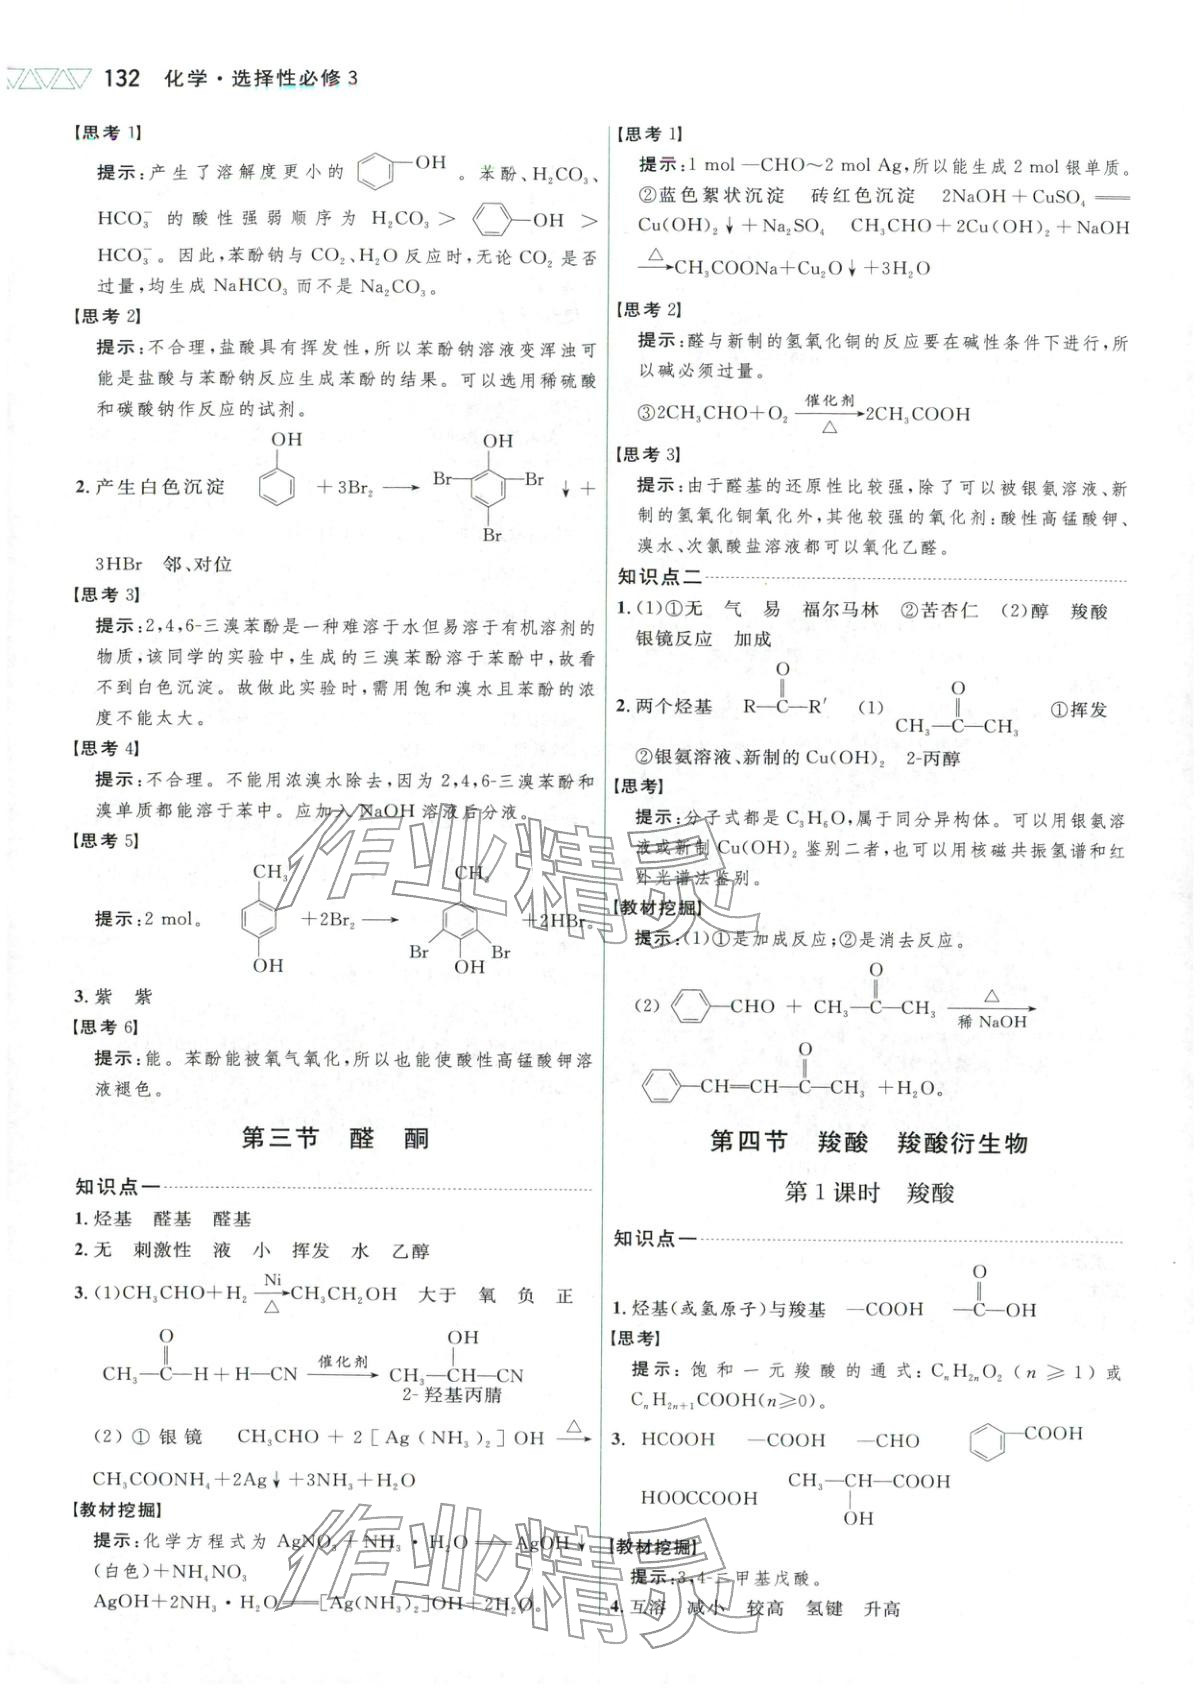 132 化学·选择性必修3
【思考1】
提示:产生了溶解度更小的 —OH 。苯酚、H₂CO₃、
HCO₃⁻ 的酸性强弱顺序为 H₂CO₃ > —OH >
HCO₃⁻。因此,苯酚钠与 CO₂、H₂O 反应时,无论 CO₂ 是否
过量,均生成 NaHCO₃ 而不是 Na₂CO₃。
【思考2】
提示:不合理,盐酸具有挥发性,所以苯酚钠溶液变浑浊可
能是盐酸与苯酚钠反应生成苯酚的结果。可以选用稀硫酸
和碳酸钠作反应的试剂。
OH OH
2.产生白色沉淀 +3Br₂ ⟶ Br— —Br ↓+
Br
3HBr 邻、对位
【思考3】
提示:2,4,6-三溴苯酚是一种难溶于水但易溶于有机溶剂的
物质,该同学的实验中,生成的三溴苯酚溶于苯酚中,故看
不到白色沉淀。故做此实验时,需用饱和溴水且苯酚的浓
度不能太大。
【思考4】
提示:不合理。不能用浓溴水除去,因为 2,4,6-三溴苯酚和
溴单质都能溶于苯中。应加入 NaOH 溶液后分液。
【思考5】
CH₃ CH₃
提示:2 mol。 +2Br₂ ⟶ +2HBr。
OH Br OH Br
3.紫 紫
【思考6】
提示:能。苯酚能被氧气氧化,所以也能使酸性高锰酸钾溶
液褪色。
第三节 醛 酮
知识点一
1.烃基 醛基 醛基
2.无 刺激性 液 小 挥发 水 乙醇
3.(1)CH₃CHO+H₂ —Ni/△→ CH₃CH₂OH 大于 氧 负 正
O OH
CH₃—C—H+H—CN —催化剂→ CH₃—CH—CN
2-羟基丙腈
(2)①银镜 CH₃CHO+2[Ag(NH₃)₂]OH —△→
CH₃COONH₄+2Ag↓+3NH₃+H₂O
【教材挖掘】
提示:化学方程式为 AgNO₃+NH₃·H₂O══AgOH↓
(白色)+NH₄NO₃
AgOH+2NH₃·H₂O══[Ag(NH₃)₂]OH+2H₂O。
【思考1】
提示:1 mol —CHO～2 mol Ag,所以能生成 2 mol 银单质。
②蓝色絮状沉淀 砖红色沉淀 2NaOH+CuSO₄══
Cu(OH)₂↓+Na₂SO₄ CH₃CHO+2Cu(OH)₂+NaOH
—△→CH₃COONa+Cu₂O↓+3H₂O
【思考2】
提示:醛与新制的氢氧化铜的反应要在碱性条件下进行,所
以碱必须过量。
③2CH₃CHO+O₂ —催化剂/△→2CH₃COOH
【思考3】
提示:由于醛基的还原性比较强,除了可以被银氨溶液、新
制的氢氧化铜氧化外,其他较强的氧化剂:酸性高锰酸钾、
溴水、次氯酸盐溶液都可以氧化乙醛。
知识点二
1.(1)①无 气 易 福尔马林 ②苦杏仁 (2)醇 羧酸
银镜反应 加成
O O
2.两个烃基 R—C—R′ (1) CH₃—C—CH₃ ①挥发
②银氨溶液、新制的Cu(OH)₂ 2-丙醇
【思考】
提示:分子式都是 C₃H₆O,属于同分异构体。可以用银氨溶
液或新制 Cu(OH)₂ 鉴别二者,也可以用核磁共振氢谱和红
外光谱法鉴别。
【教材挖掘】
提示:(1)①是加成反应;②是消去反应。
O
(2) —CHO + CH₃—C—CH₃ —△/稀NaOH→
O
—CH═CH—C—CH₃ +H₂O。
第四节 羧酸 羧酸衍生物
第1课时 羧酸
知识点一
O
1.烃基(或氢原子)与羧基 —COOH —C—OH
【思考】
提示:饱和一元羧酸的通式:CₙH₂ₙO₂(n≥1)或
CₙH₂ₙ₊₁COOH(n≥0)。
3. HCOOH —COOH —CHO —COOH
HOOCCOOH CH₃—CH—COOH
OH
【教材挖掘】
提示:3,4-二甲基戊酸。
4.互溶 减小 较高 氢键 升高
作业精灵
作业精灵